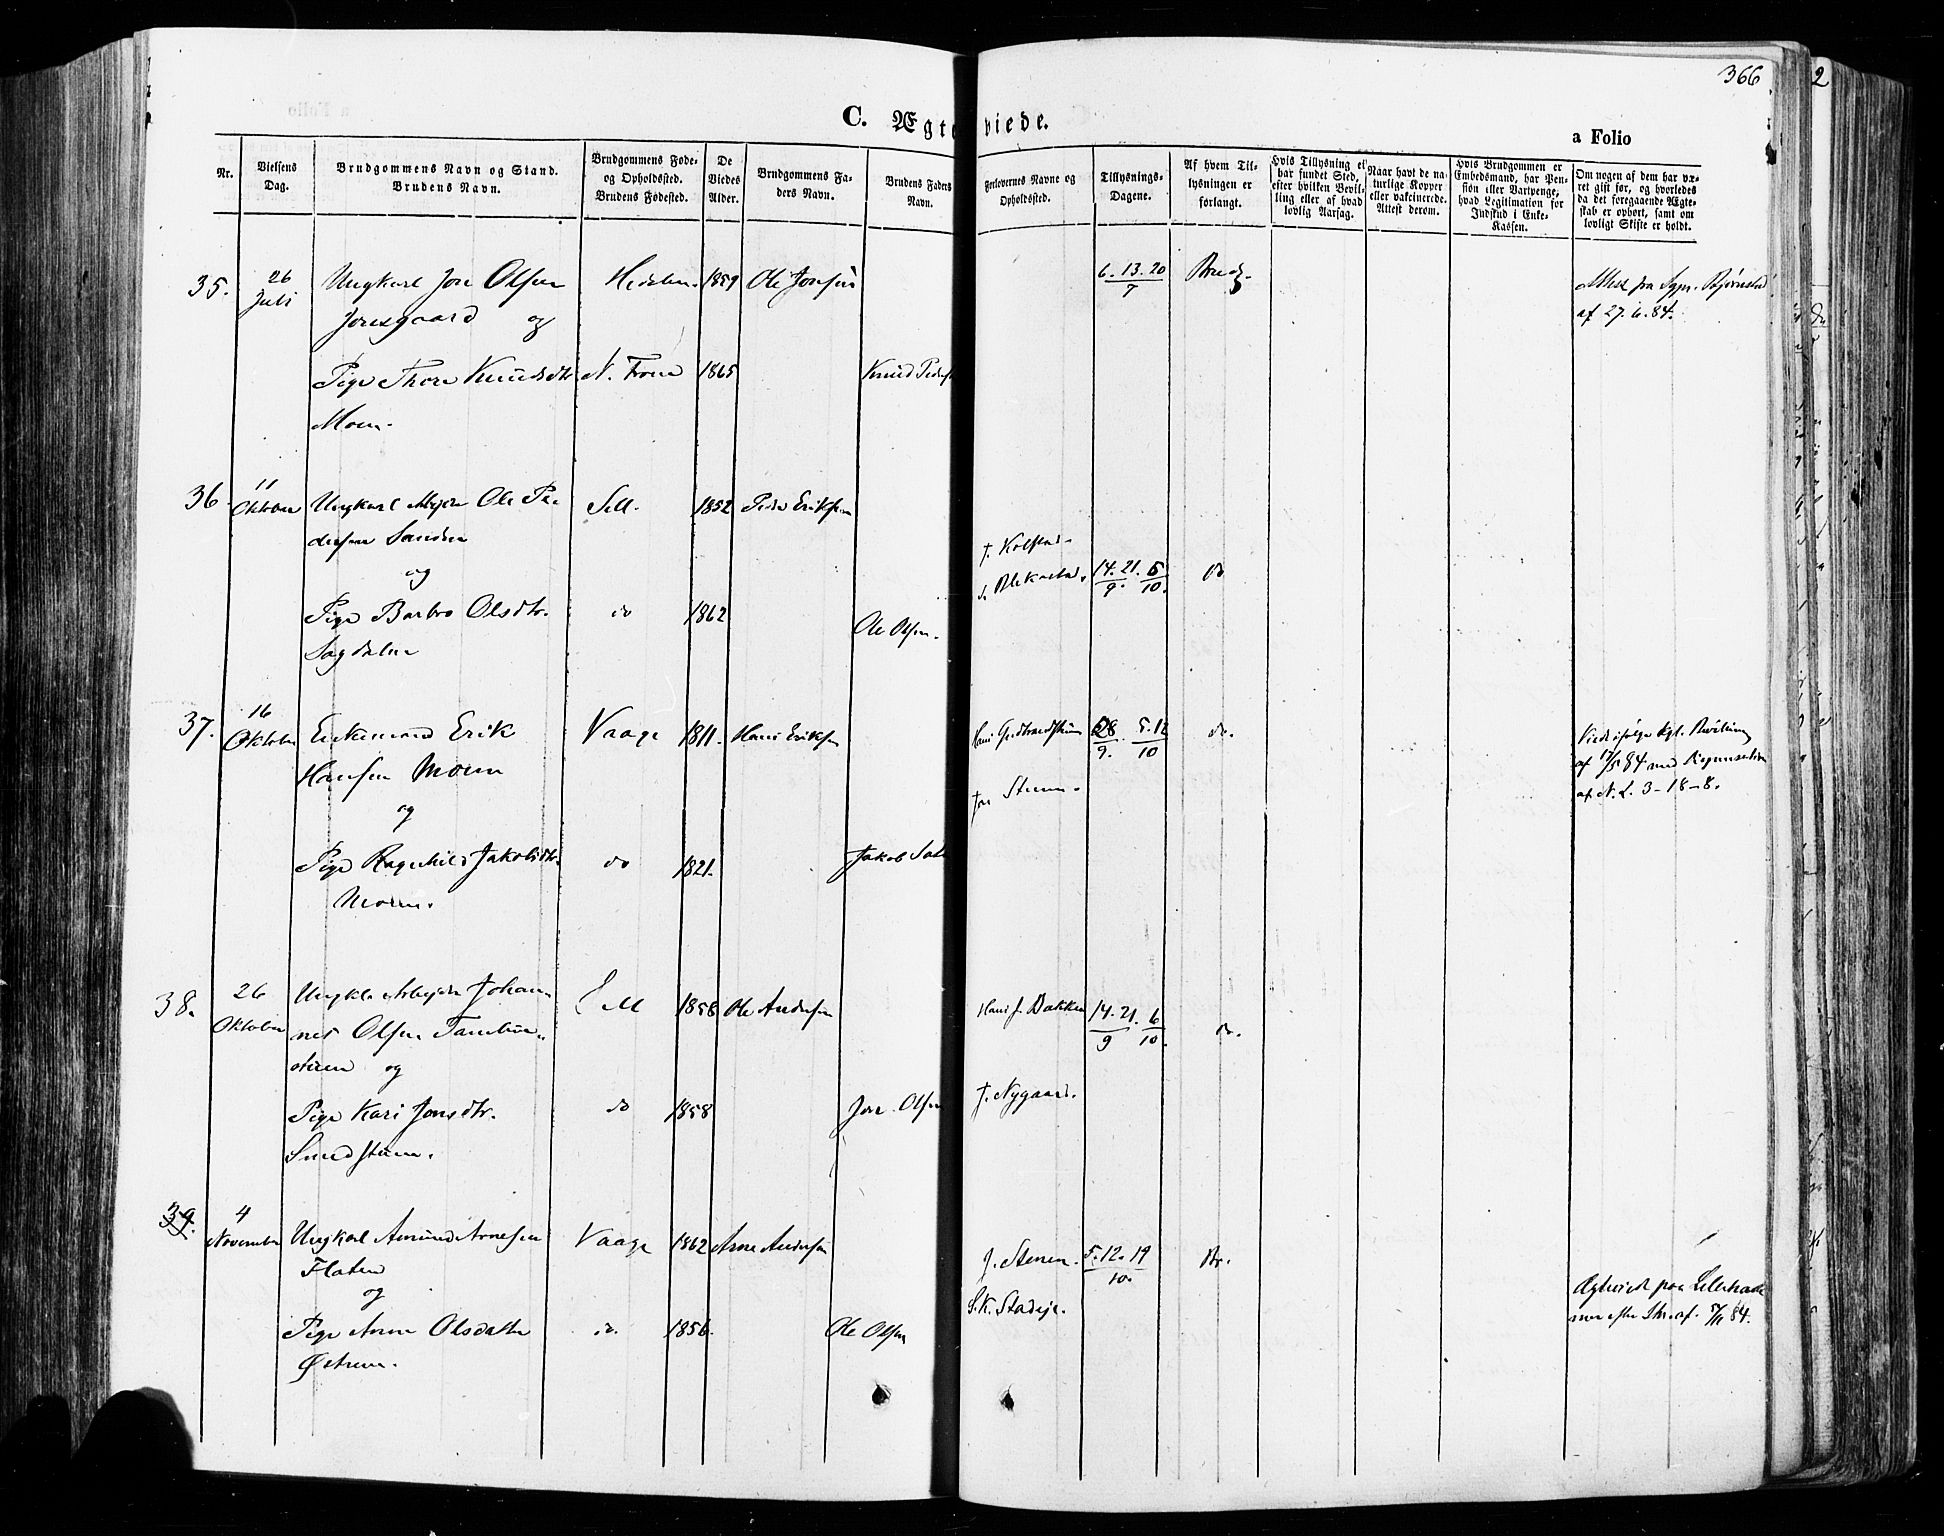 366
2
C. Ægteviede.
a Folio
Nr.
Vielsens Dag.
Brudgommens Navn og Stand.
Brudens Navn.
Brudgommens Føde-
og Opholdssted.
Brudens Fødested.
De
Viedes
Alder.
Brudgommens Fa-
ders Navn.
Brudens Faders
Navn.
Forlovernes Navne og
Opholdssted.
Tillysnings-
Dagene.
Af hvem Til-
lysningen er
forlangt.
Hvis Tillysning ei
har fundet Sted,
efter hvilken Bevil-
ling eller af hvad
lovlig Aarsag.
Naar havt de na-
turlige Kopper
eller vakcinerede.
Attest derom.
Hvis Brudgommen er
Embedsmand, har Pen-
sion eller Vartpenge,
hvad Legitimation for
Indskud i Enke-
Kassen.
Om nogen af dem har væ-
ret gift før, og hvorledes
da det foregaaende Ægte-
skab er ophørt, samt om
lovligt Skifte er holdt.
35. 26 Juli Ungkarl Jon Olsen Hedalen. 1859 Ole Jonsen 6. 13. 20 Brudg.
7
Jonsgaard og
Attest fra Sgpr. Bjørnstad
af 27.6.84.
Pige Thora Knudsdtr. N. Fron 1865 Knud Peders
Moen.
36. 11 Oktober Ungkarl Arbejder Ole Pe- Sell. 1852 Peder Eriksen
dersen Sanden
og
J. Kolstad.
J. Blekastad. 14. 21. 5 do
9. 10.
Pige Barbro Olsdtr. do 1862 Ole Olsen.
Sagdalen
37. 16 Oktober Enkemand Erik Vaage 1811. Hans Eriksen Hans Gudbrandsthuen 28 5. 12 do.
9. 10
Hansen Moen
og
Jon Steen.
Viede ifølge Kgl. Bevilling
af 17/5 84 med Dispensation
af N. L. 3-18-8.
Pige Ragnhild Jakobsdtr. do 1821. Jakob
Moen.
38. 26 Oktober Ungkl. Arbejder Johan- Sell 1858 Ole Andersen Hans J. Bakken 14. 21. 6 do.
9 10.
nes Olsen
og
J. Nygaard.
Pige Kari Jonsdtr. do 1858 Jon Olsen
39. 4 November Ungkarl Amund Arnesen Vaage 1862 Arne Andersen J. Stenen. 5. 12. 19 Br.
10.
Flaten
og
S. K. Stadeje.
Pige Anne Olsdatter do. 1856. Ole Olsen
Østrem.
Ægteviede paa Lilleham-
mer efter Skr. af 7/11 84.